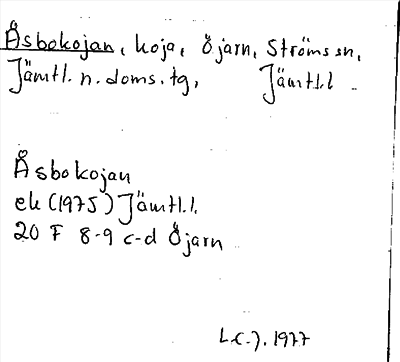 Åsbokojan, koja, Öjarn, Ströms sn,
Jämtl. n. doms. tg, Jämtl.l
Åsbokojan
ek (1975) Jämtl.l.
20 F 8-9 c-d Öjarn
L.C.J. 1977